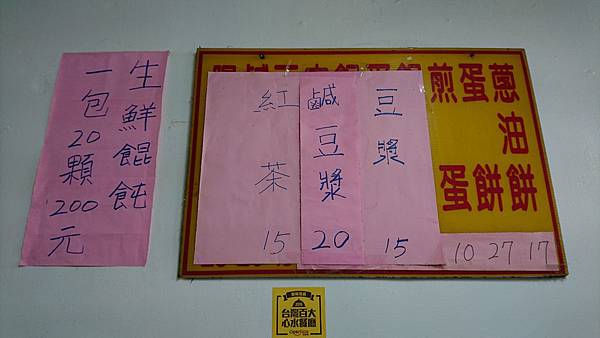 蔥油餅 17
蛋餅 27
煎蛋 10
豆漿 15
鹹豆漿 20
紅茶 15
生鮮餛飩
一包20顆200元
台灣百大
心水餐廳